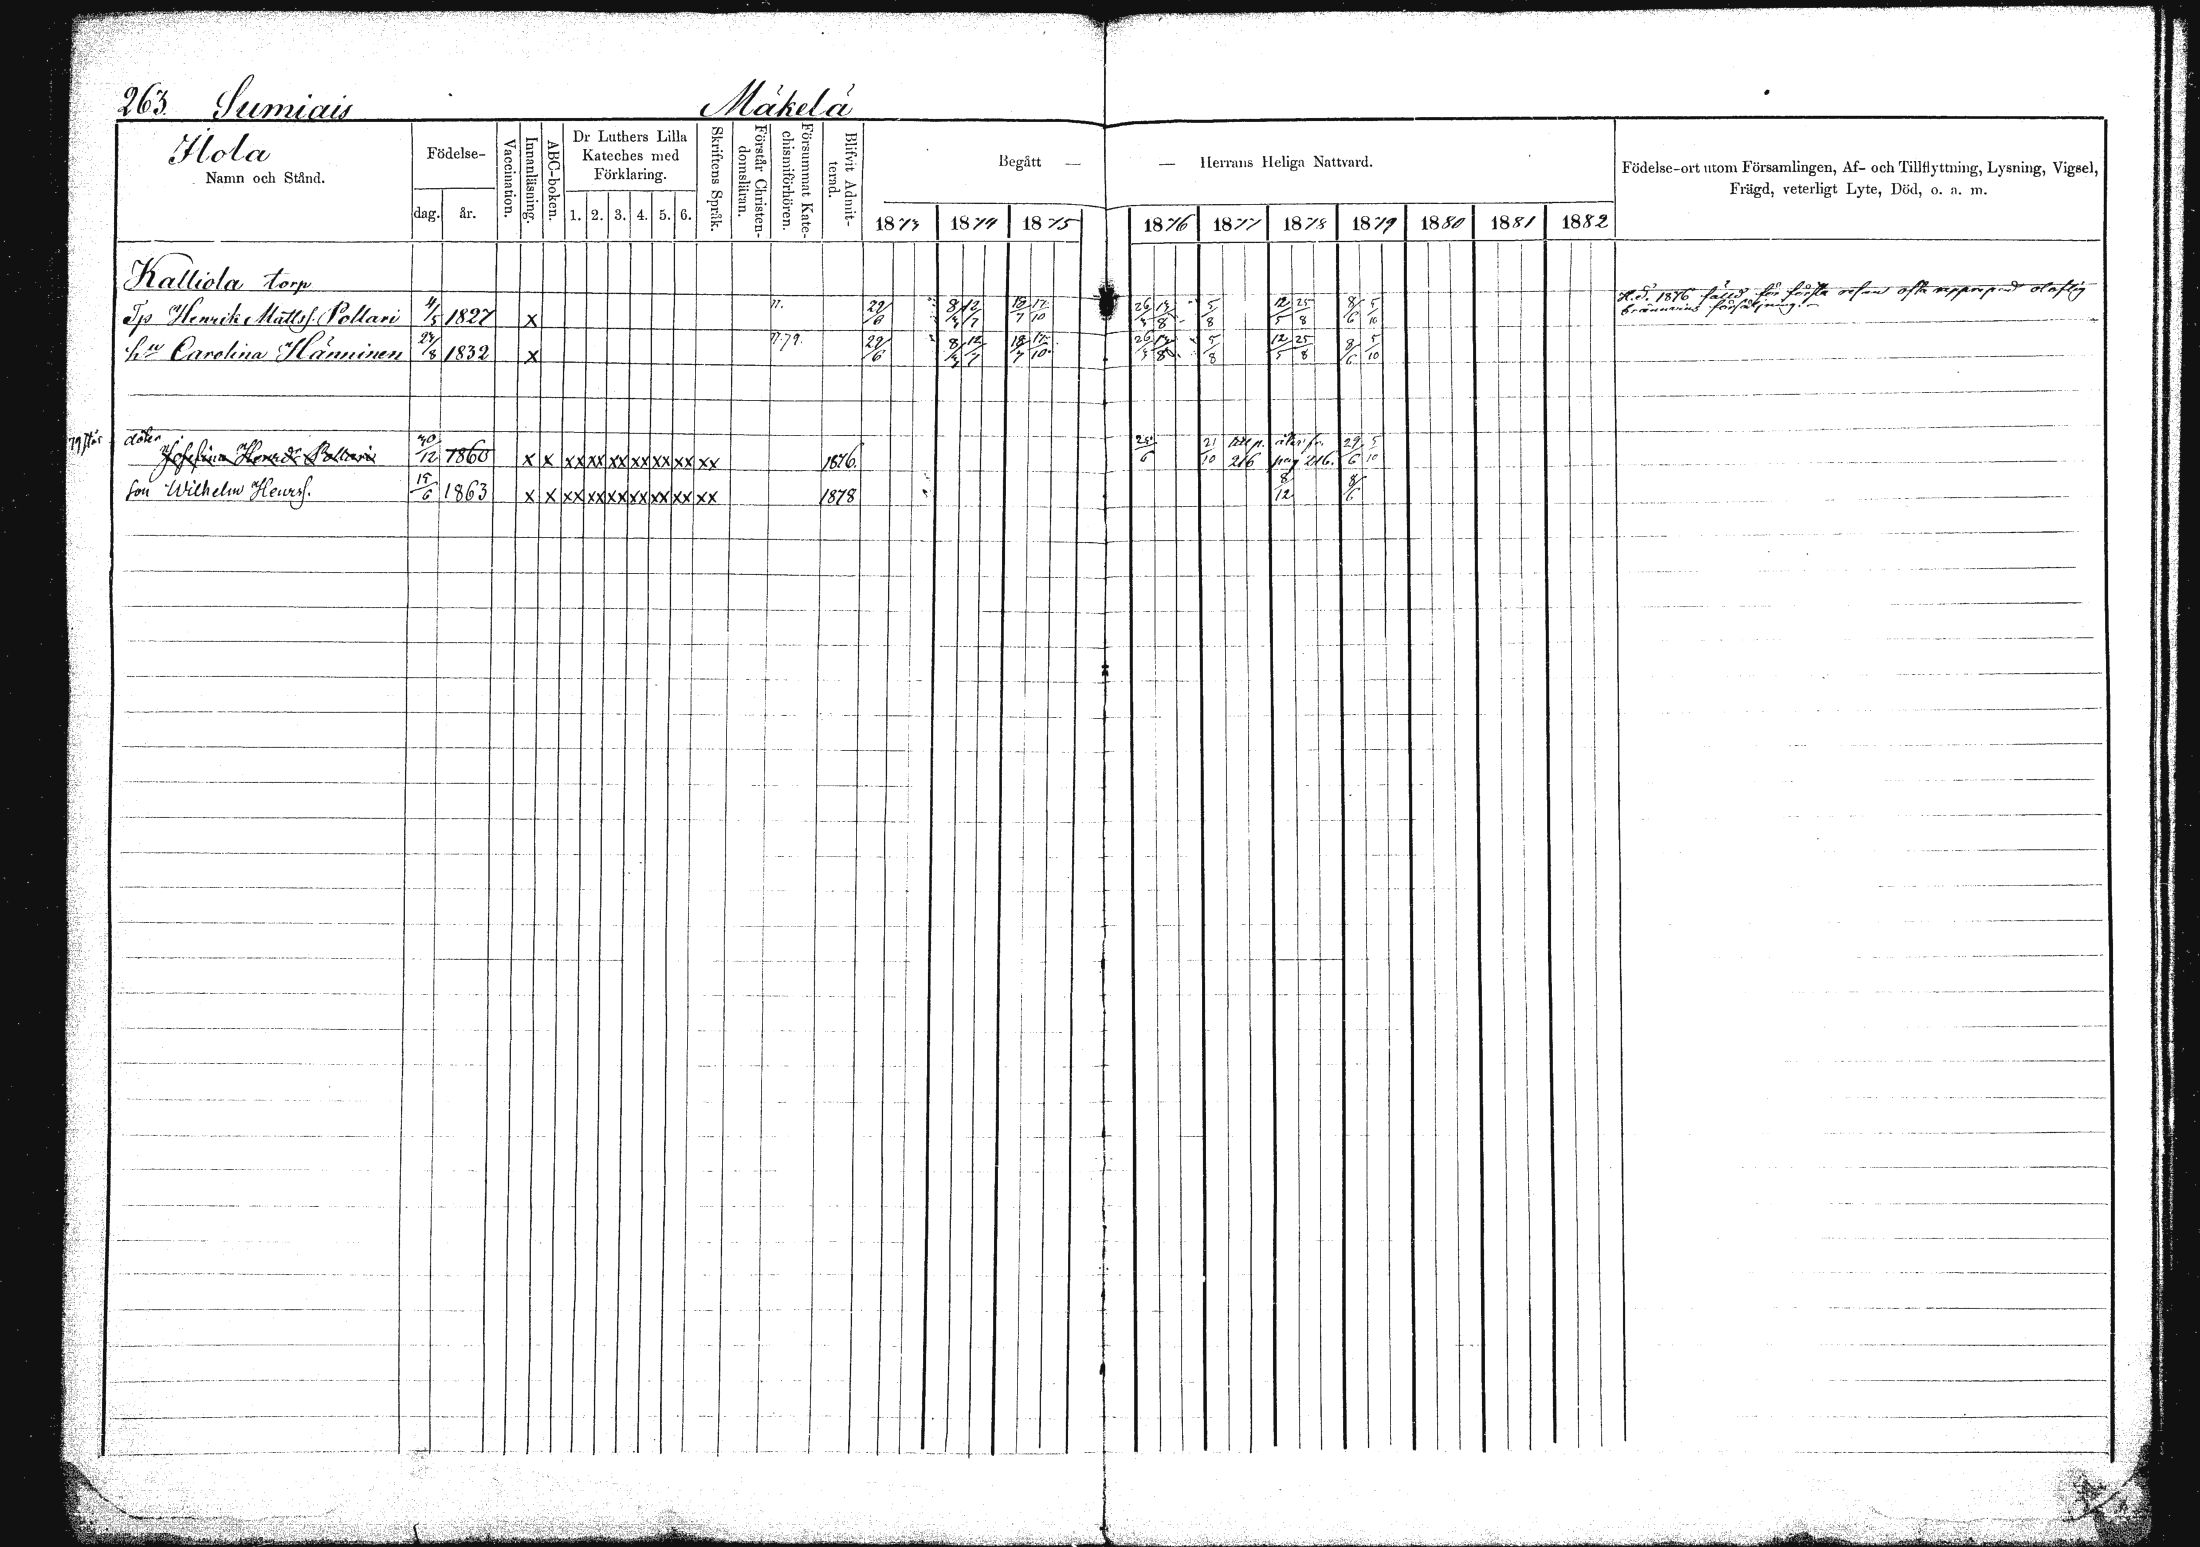 263. Sumiais Mäkelä
Ilola
Namn och Stånd.
Födelse-
dag. år.
Vaccination.
Innanläsning.
ABC-boken.
Dr Luthers Lilla
Kateches med
Förklaring.
1. 2. 3. 4. 5. 6.
Skriftens Språk.
Förstår Christen-
domsläran.
Försummat Kate-
chismiförhören.
Blifvit Admit-
terad.
Begått — — Herrans Heliga Nattvard.
1873 1874 1875 1876 1877 1878 1879 1880 1881 1882
Födelse-ort utom Församlingen, Af- och Tillflyttning, Lysning, Vigsel,
Frägd, veterligt Lyte, Död, o. a. m.
Kalliola torp
Tp Henrik Mattss. Pollari 4/5 1827 x n. 29/6 8/3 12/7 18/7 17/10 26/3 13/8 5/8 12/5 25/8 8/6 5/10 H.d. 1876 för första olaflig
försäljning.
hu Carolina Hänninen 24/8 1832 x n.79. 29/6 8/3 12/7 18/7 17/10 26/3 13/8 5/8 12/5 25/8 8/6 5/10
dotter
Josefina Henrdr Pollari 30/12 1860 x x xx xx xx xx xx xx xx 1876. 25/6 21/10 till p. 216 åter fr. pag 216. 29/6 5/10
son Wilhelm Henrss. 15/6 1863 x x xx xx xx xx xx xx xx 1878 8/12 8/6